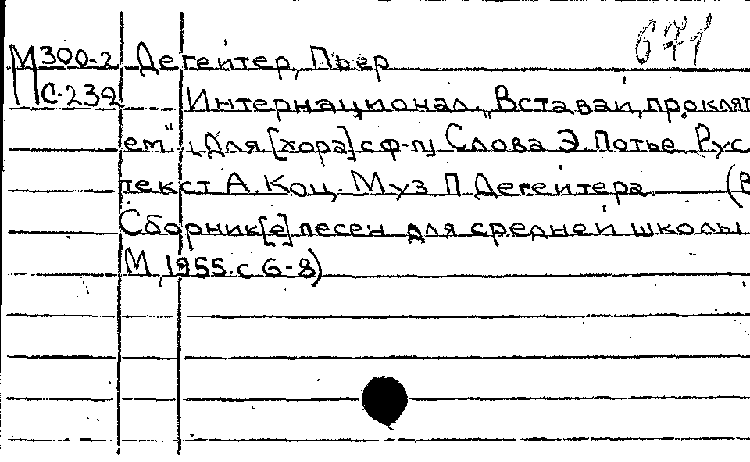 671
М300-2 Дегейтер, Пьер
С-239 Интернационал. „Вставай, проклят
ем". [Для [хора] с ф-п] Слова Э. Потье. Рус
текст А. Коц. Муз П. Дегейтера (В
Сборник[е] песен для средней школы
М, 1955. с 6-8)